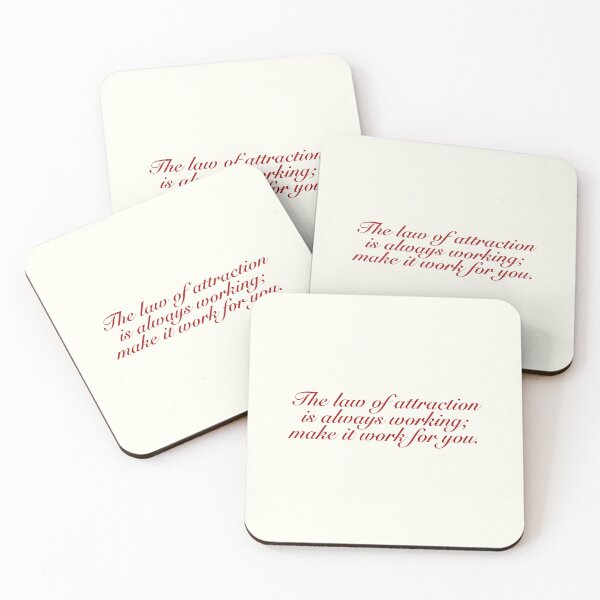 The law of attraction
is always working;
for you
The law of attraction
is always working;
make it work for you.
The law of attraction
is always working;
make it work for you.
The law of attraction
is always working;
make it work for you.